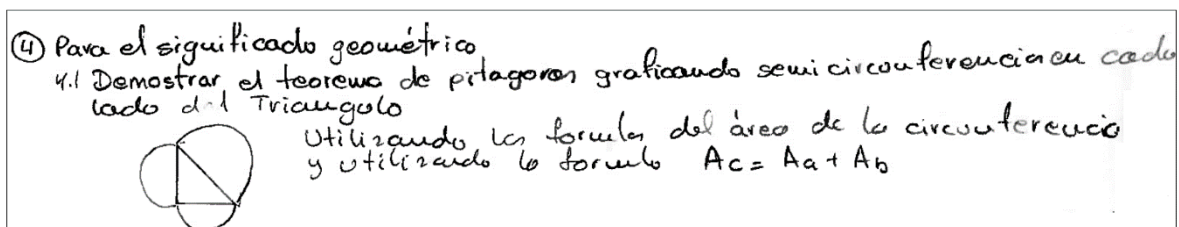 ④ Para el significado geométrico
4.1 Demostrar el teorema de pitagoras graficando semi circonferencia en cada
lado del Triangulo
Utilizando las formulas del área de la circonferencia
y utilizando la formula Ac = Aa + Ab